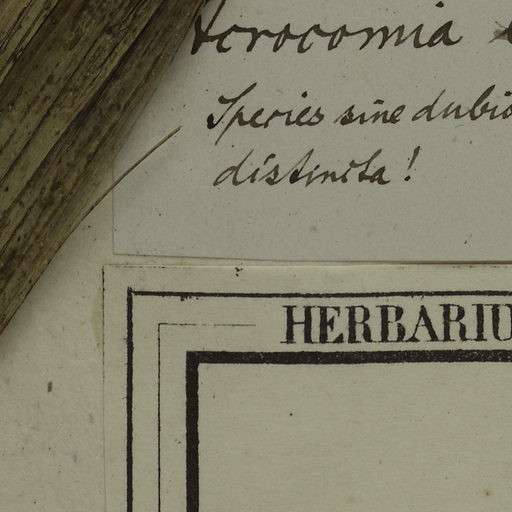 Acrocomia
Species sine dubio
distincta!
HERBARIU